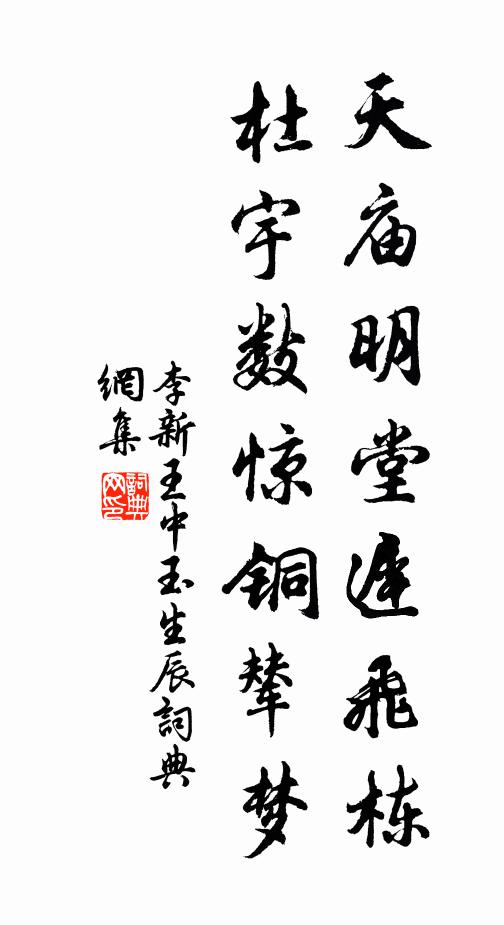 天庙明堂迟飞栋
杜宇数惊铜辇梦
李新王中玉生辰詞典
網集
詞典
网印